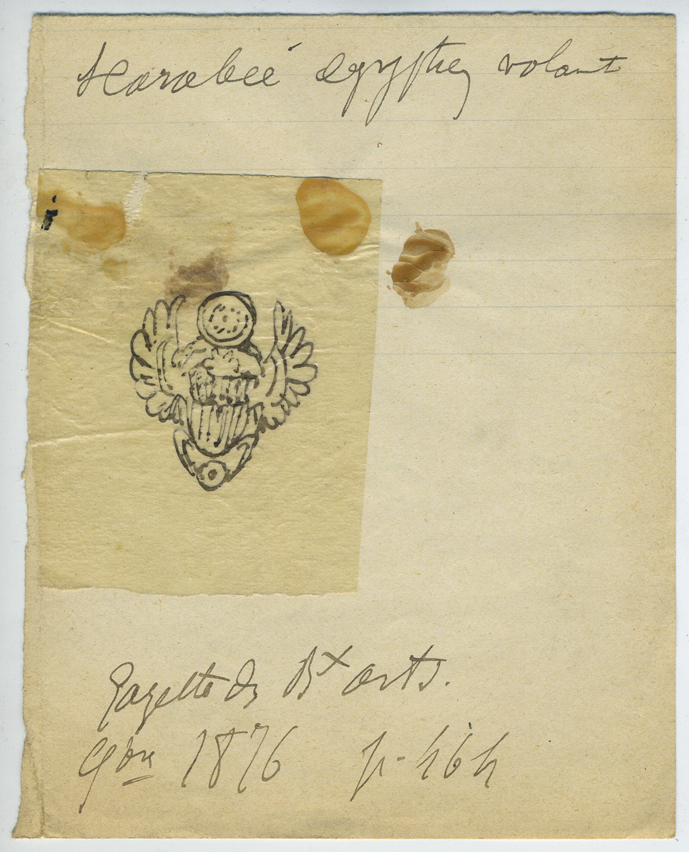 Scarabée égyptien volant
Gazette des Bx arts.
9bre 1876 p. 464